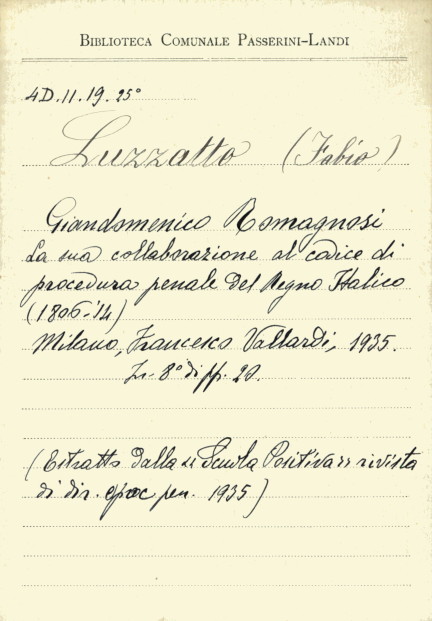 BIBLIOTECA COMUNALE PASSERINI-LANDI
4D.11.19.25°
Luzzatto (Fabio)
Giandomenico Romagnosi
La sua collaborazione al codice di
procedura penale del Regno Italico
(1806-'14)
Milano, Francesco Vallardi, 1935.
In-8° di pp. 20.
(Estratto dalla « Scuola Positiva » rivista
di dir. e proc. pen. 1935)